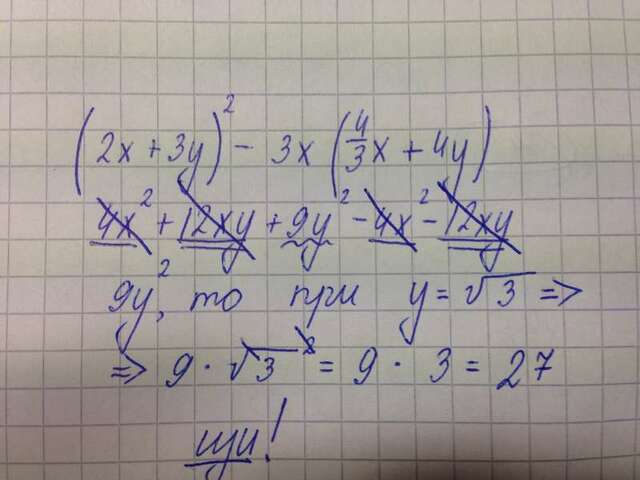 (2x + 3y)² - 3x (4/3 x + 4y)
4x² + 12xy + 9y² - 4x² - 12xy
9y², то при y = √3 =>
=> 9 · √3² = 9 · 3 = 27